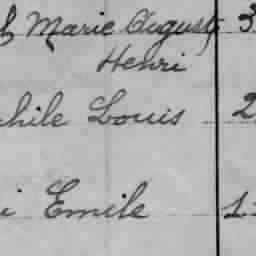 h Marie August 3
Henri
phile Louis 2
i Emile 1